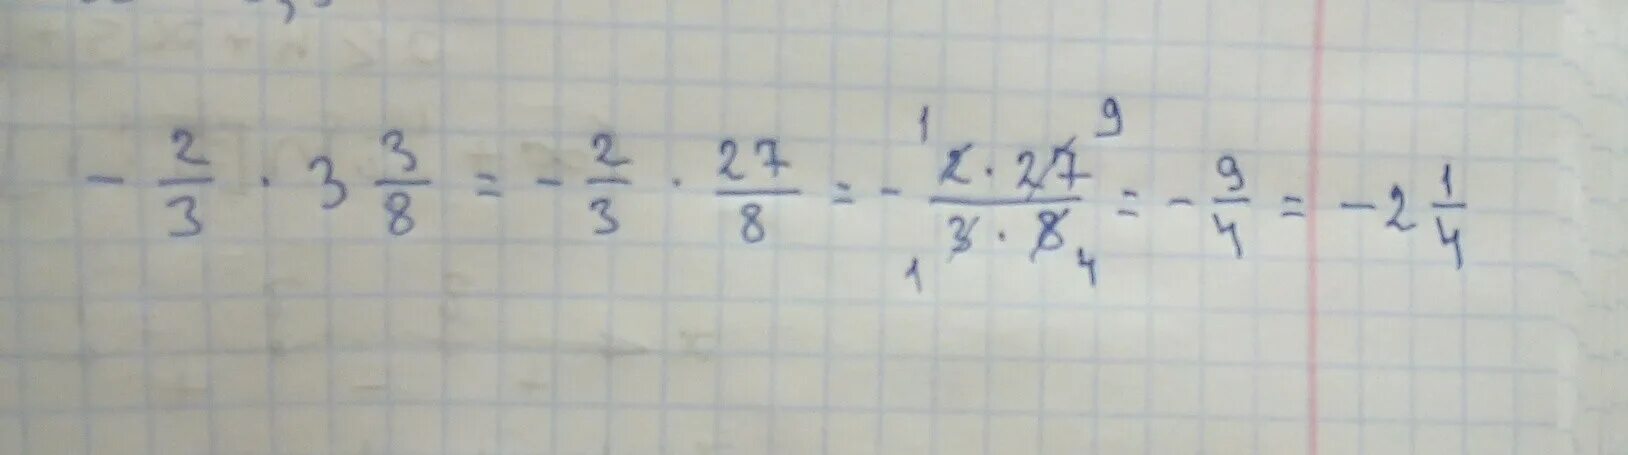 - 2/3 · 3 3/8 = - 2/3 · 27/8 = - (1 2 · 27 9)/(1 3 · 8 4) = - 9/4 = - 2 1/4